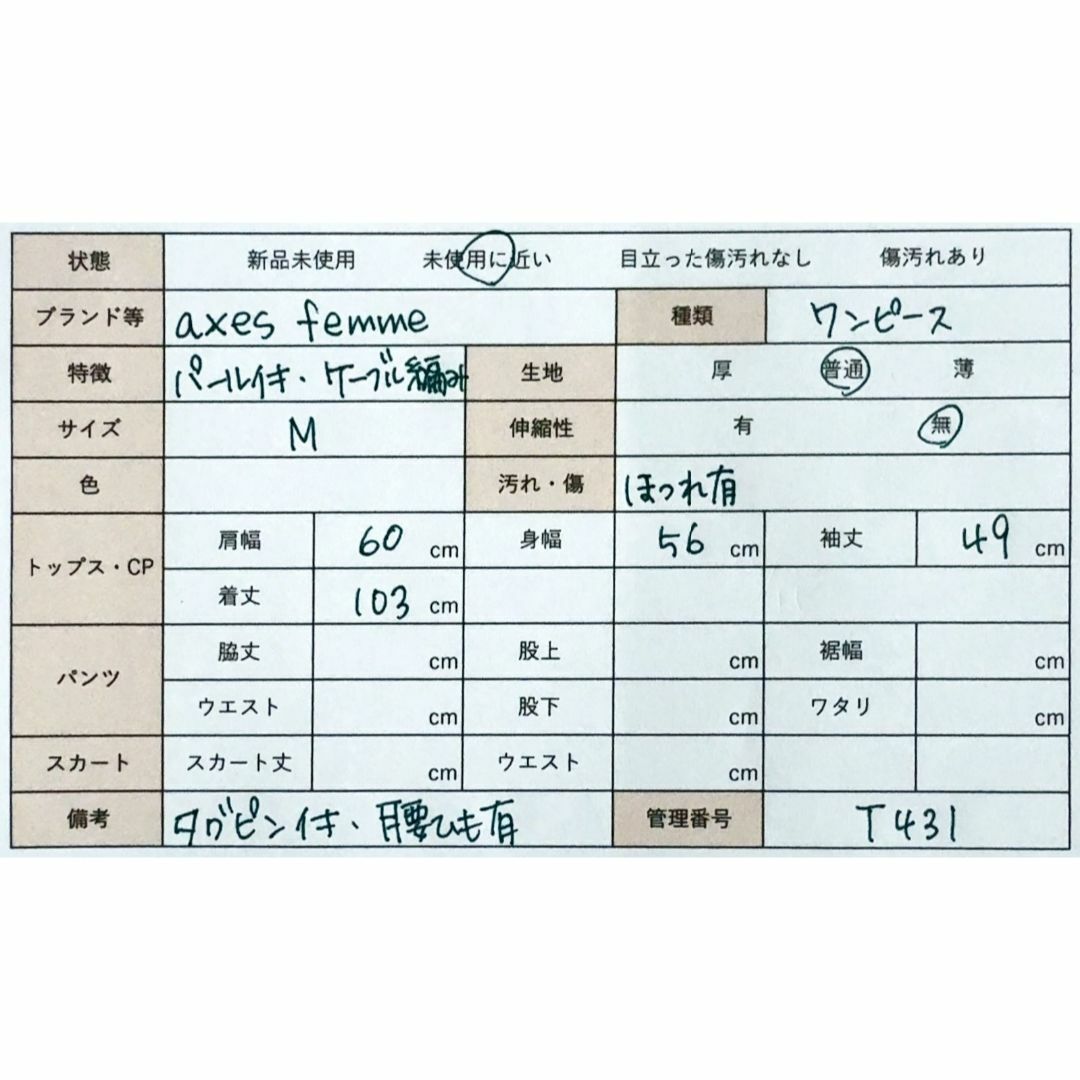 状態 新品未使用 未使用に近い 目立った傷汚れなし 傷汚れあり
ブランド等 axes femme 種類 ワンピース
特徴 パール付き・ケーブル編み 生地 厚 普通 薄
サイズ M 伸縮性 有 無
色 汚れ・傷 ほつれ有
トップス・CP 肩幅 60 cm 身幅 56 cm 袖丈 49 cm
着丈 103 cm
パンツ 脇丈 cm 股上 cm 裾幅 cm
ウエスト cm 股下 cm ワタリ cm
スカート スカート丈 cm ウエスト cm
備考 タグピン付き・腰ひも有 管理番号 T431